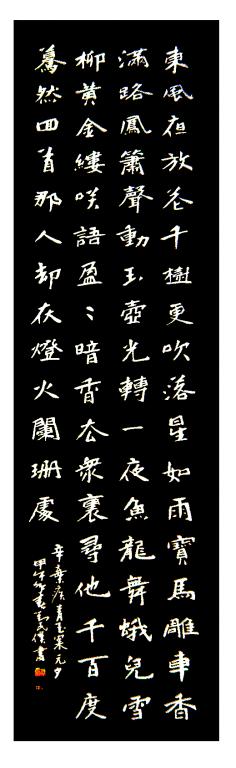 東風夜放花千樹更吹落星如雨寶馬雕車香
滿路鳳簫聲動玉壺光轉一夜魚龍舞蛾兒雪
柳黃金縷笑語盈〻暗香去衆裏尋他千百度
驀然回首那人却在燈火闌珊處
辛棄疾青玉案元夕
甲午
書